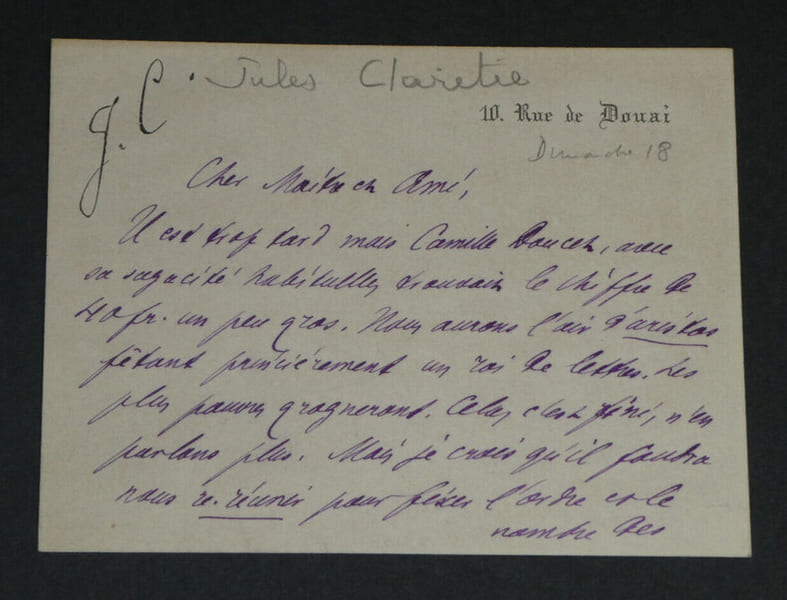 Jules Claretie
J. C.
10. Rue de Douai
Dimanche 18
Cher Maître et Ami,
Il est trop tard mais Camille Doucet, avec
sa sagacité habituelle, trouvait le chiffre de
40 fr. un peu gros. Nous aurons l'air d'aristos
fêtant princièrement un roi de lettres. Les
plus pauvres grogneront. Cela, c'est fini, n'en
parlons plus. Mais je crois qu'il faudra
nous re-réunir pour fixer l'ordre et le
nombre des